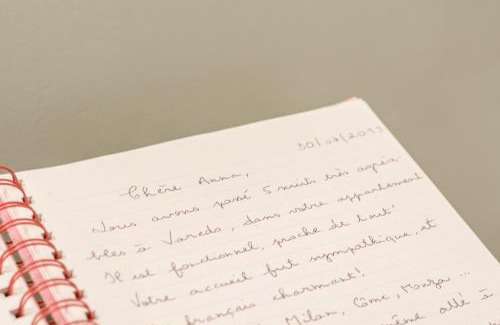 30/07/2019
Chère Anna,
Nous avons passé 5 nuits très agréa-
bles à Varedo, dans votre appartement
Il est fonctionnel, proche de tout!
Votre accueil fut sympathique, et
français charmant!
Milan, Côme, Monza...
même allé à